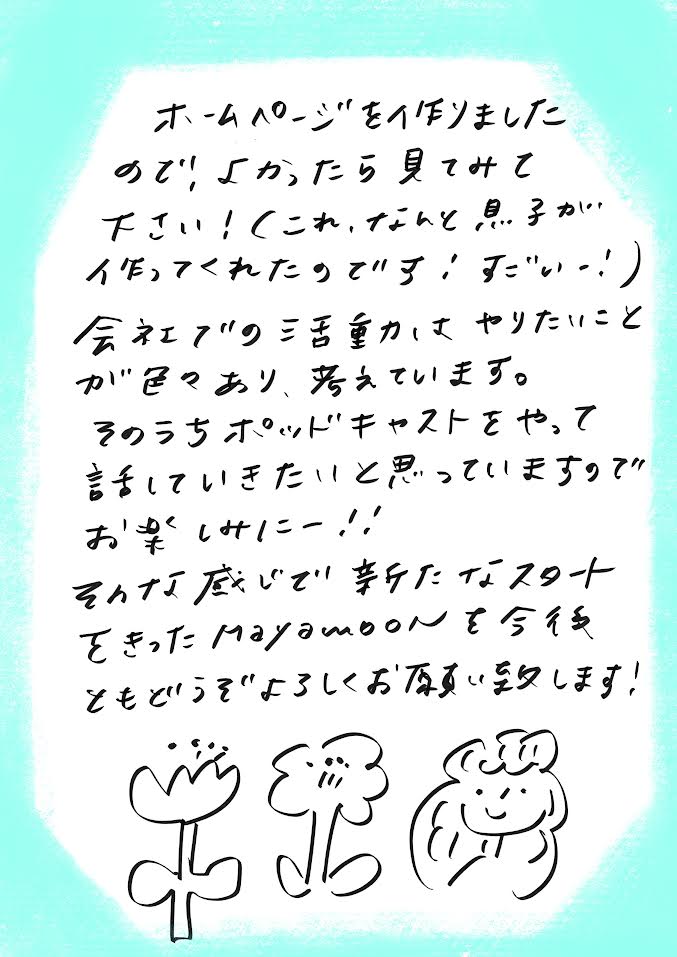 ホームページを作りました
ので！よかったら見てみて
下さい！（これ、なんと息子が
作ってくれたのです！すごいー！）
会社での活動は やりたいこと
が色々あり、考えています。
そのうちポッドキャストをやって
話していきたいと思っていますので
お楽しみにー！！
そんな感じで 新たなスタート
をきったMayamooNを今後
ともどうぞよろしくお願い致します！